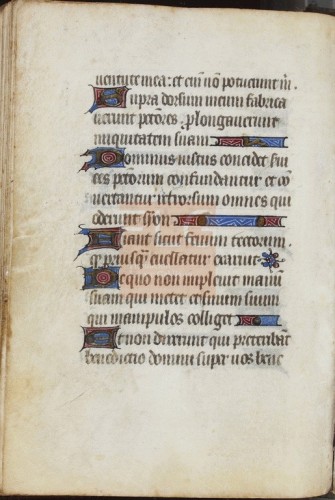 uentute mea: et eni nō potuerunt m̄.
Supra dorsum meum fabrica
uerunt pctores. plongauerunt
iniquitatem suam
Dominus iustus concidet ceruI
ces pctorum confundantur et cō
uertantur retrorsum omnes qui
oderunt syon
Fiant sicut fenum tectorum.
qd̄ priusq̄ euellatur exaruit
De quo non impleuit manū
suam qui metet et sinum suum
qui manipulos colliget
Et non dixerunt qui preteribāt
benedictio domini super uos bene